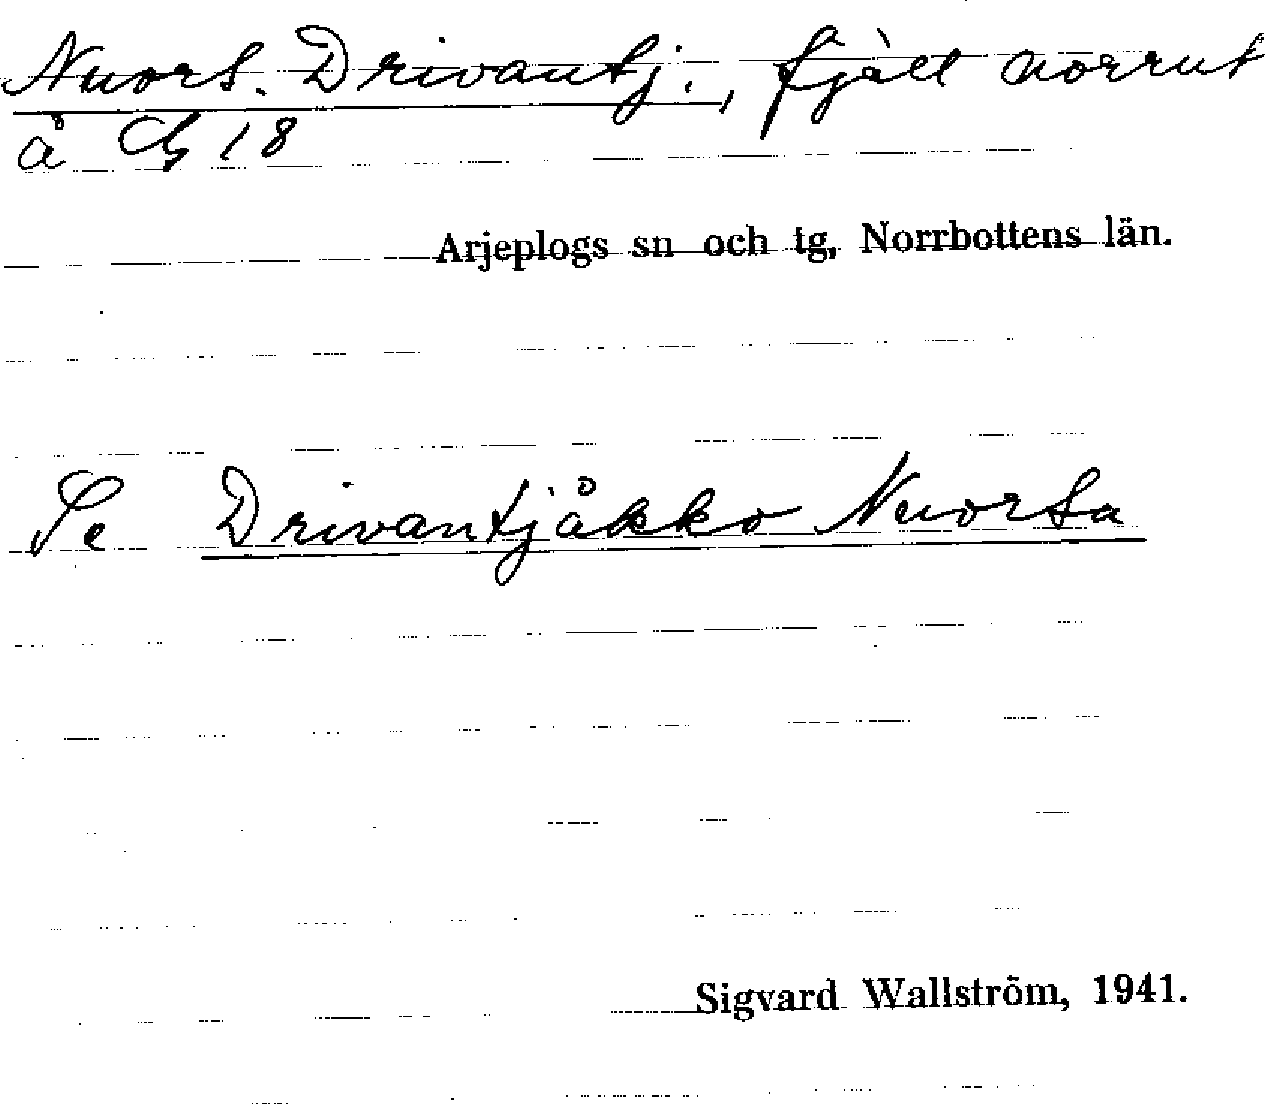 Nuors. Drivantj., fjäll norrut
å G 18
Arjeplogs sn och tg, Norrbottens län.
Se Drivantjåkko Nuorsa
Sigvard Wallström, 1941.